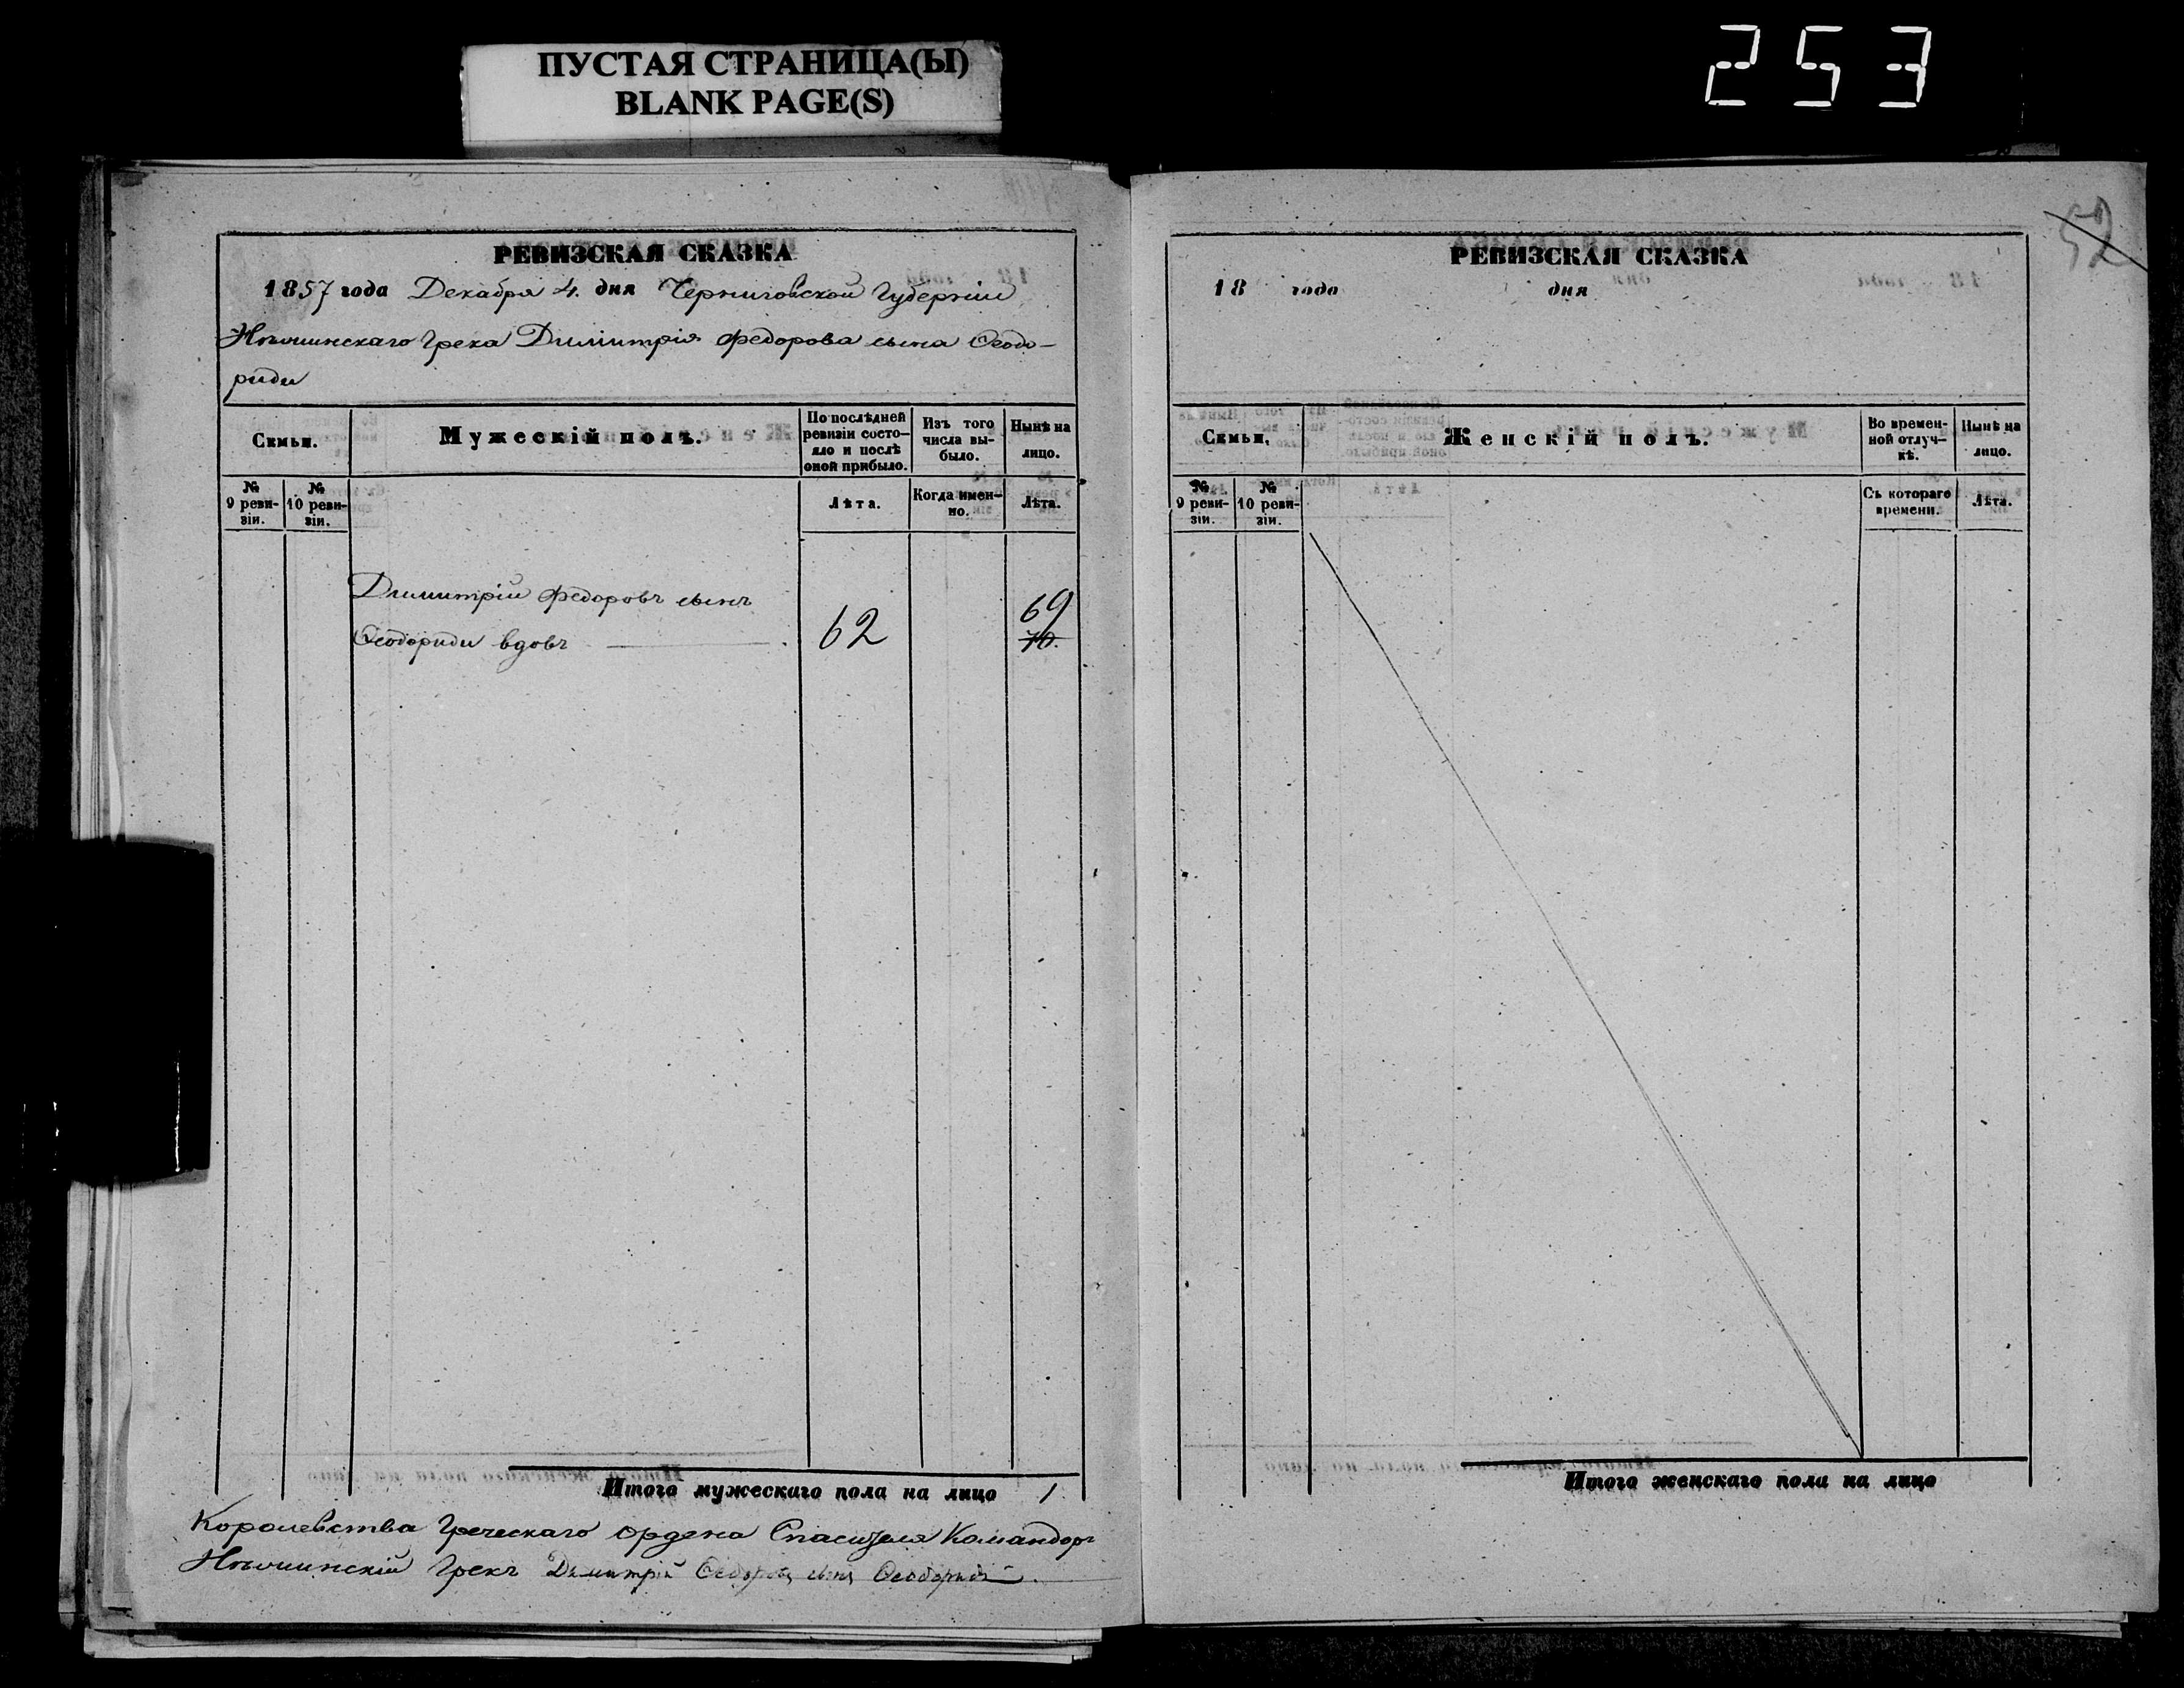 ПУСТАЯ СТРАНИЦА(Ы)
BLANK PAGE(S)
253
РЕВИЗСКАЯ СКАЗКА
1857 года Декабря 4. дня Черниговской Губерніи
Нѣжинскаго Грека Димитрія Федорова сына Ѳеодо-
риди
Семьи.
Мужескій полъ.
По послѣдней ревизіи состо-яло и послѣ оной прибыло.
Изъ того числа вы-было.
Нынѣ на лицо.
№ 9 реви-зіи.
№ 10 реви-зіи.
Лѣта.
Когда имен-но.
Лѣта.
Димитрій Федоровъ сынъ
Ѳеодориди вдовъ
62
69
70.
Итого мужескаго пола на лицо 1
Королевства Греческаго Ордена Спасителя Командоръ
Нѣжинскій Грекъ Димитрій Ѳедоровъ сынъ Ѳеодориди
52
РЕВИЗСКАЯ СКАЗКА
18 года дня
Семьи.
Женскій полъ.
Во времен-ной отлуч-кѣ.
Нынѣ на лицо.
№ 9 реви-зіи.
№ 10 реви-зіи.
Съ котораго времени.
Лѣта.
Итого женскаго пола на лицо